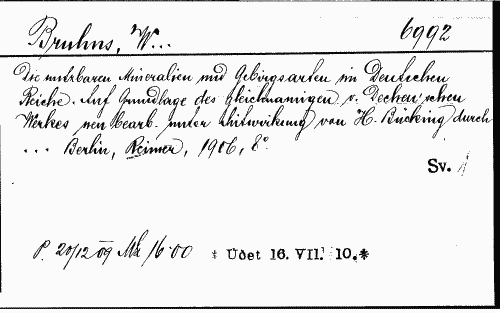 Bruhns, W... 6992
Die nutzbaren Mineralien und Gebirgsarten im Deutschen
Reiche. Auf Grundlage des gleichnamigen v. Dechen'schen
Werkes neu bearb. unter Mitwirkung von H. Bücking durch
... Berlin, Reimer, 1906, 8°.
Sv.
P. 20/12 09 Mk 16.00 * Udet 16. VII. 10.*